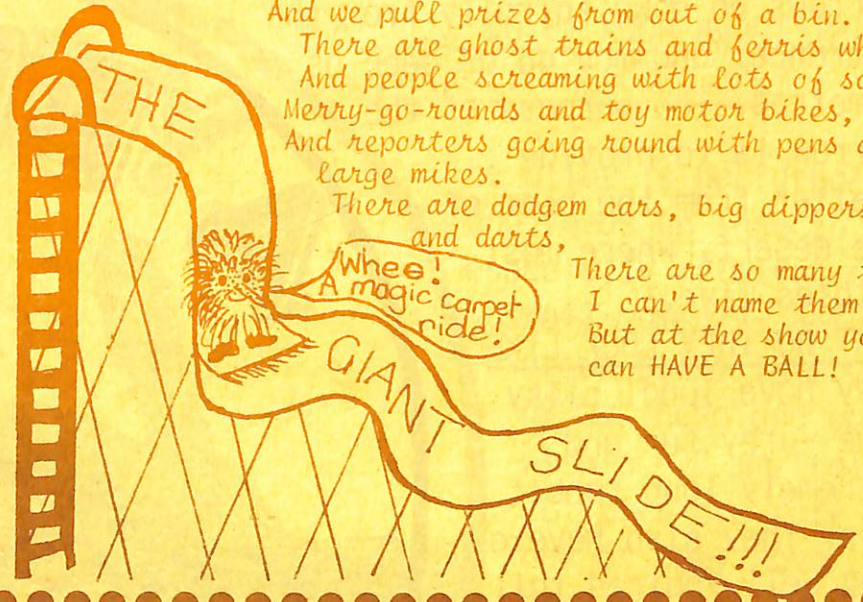 And we pull prizes from out of a bin.
There are ghost trains and ferris
And people screaming with lots of
Merry-go-rounds and toy motor bikes,
And reporters going round with pens
large mikes.
There are dodgem cars, big dippers
and darts,
There are so many
I can't name them
But at the show
can HAVE A BALL!
Whee!
A magic carpet
ride!
THE
GIANT
SLIDE!!!